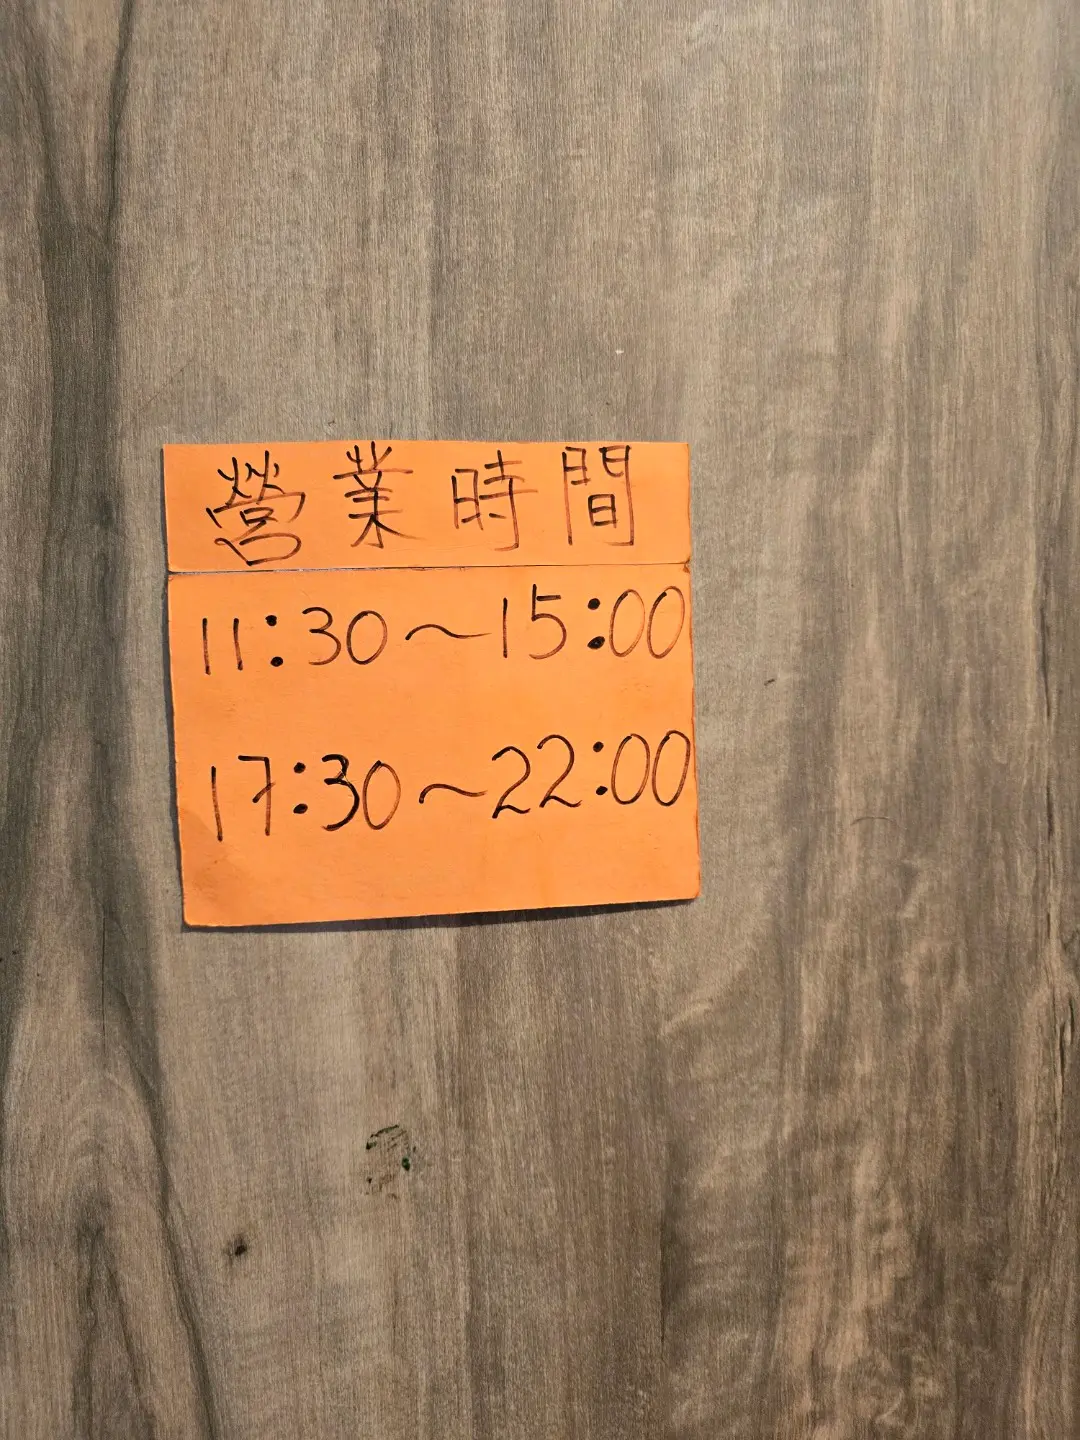 營業時間
11:30～15:00
17:30～22:00